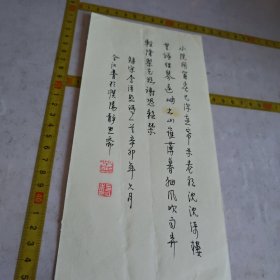 小院閒窗春已深重簾未卷影沈沈倚樓
無語理瑤琴遠岫出山催薄暮細風吹雨弄
輕陰梨花欲謝恐難禁
錄宋李清照詞一首辛卯年六月
書於濮陽靜思齋